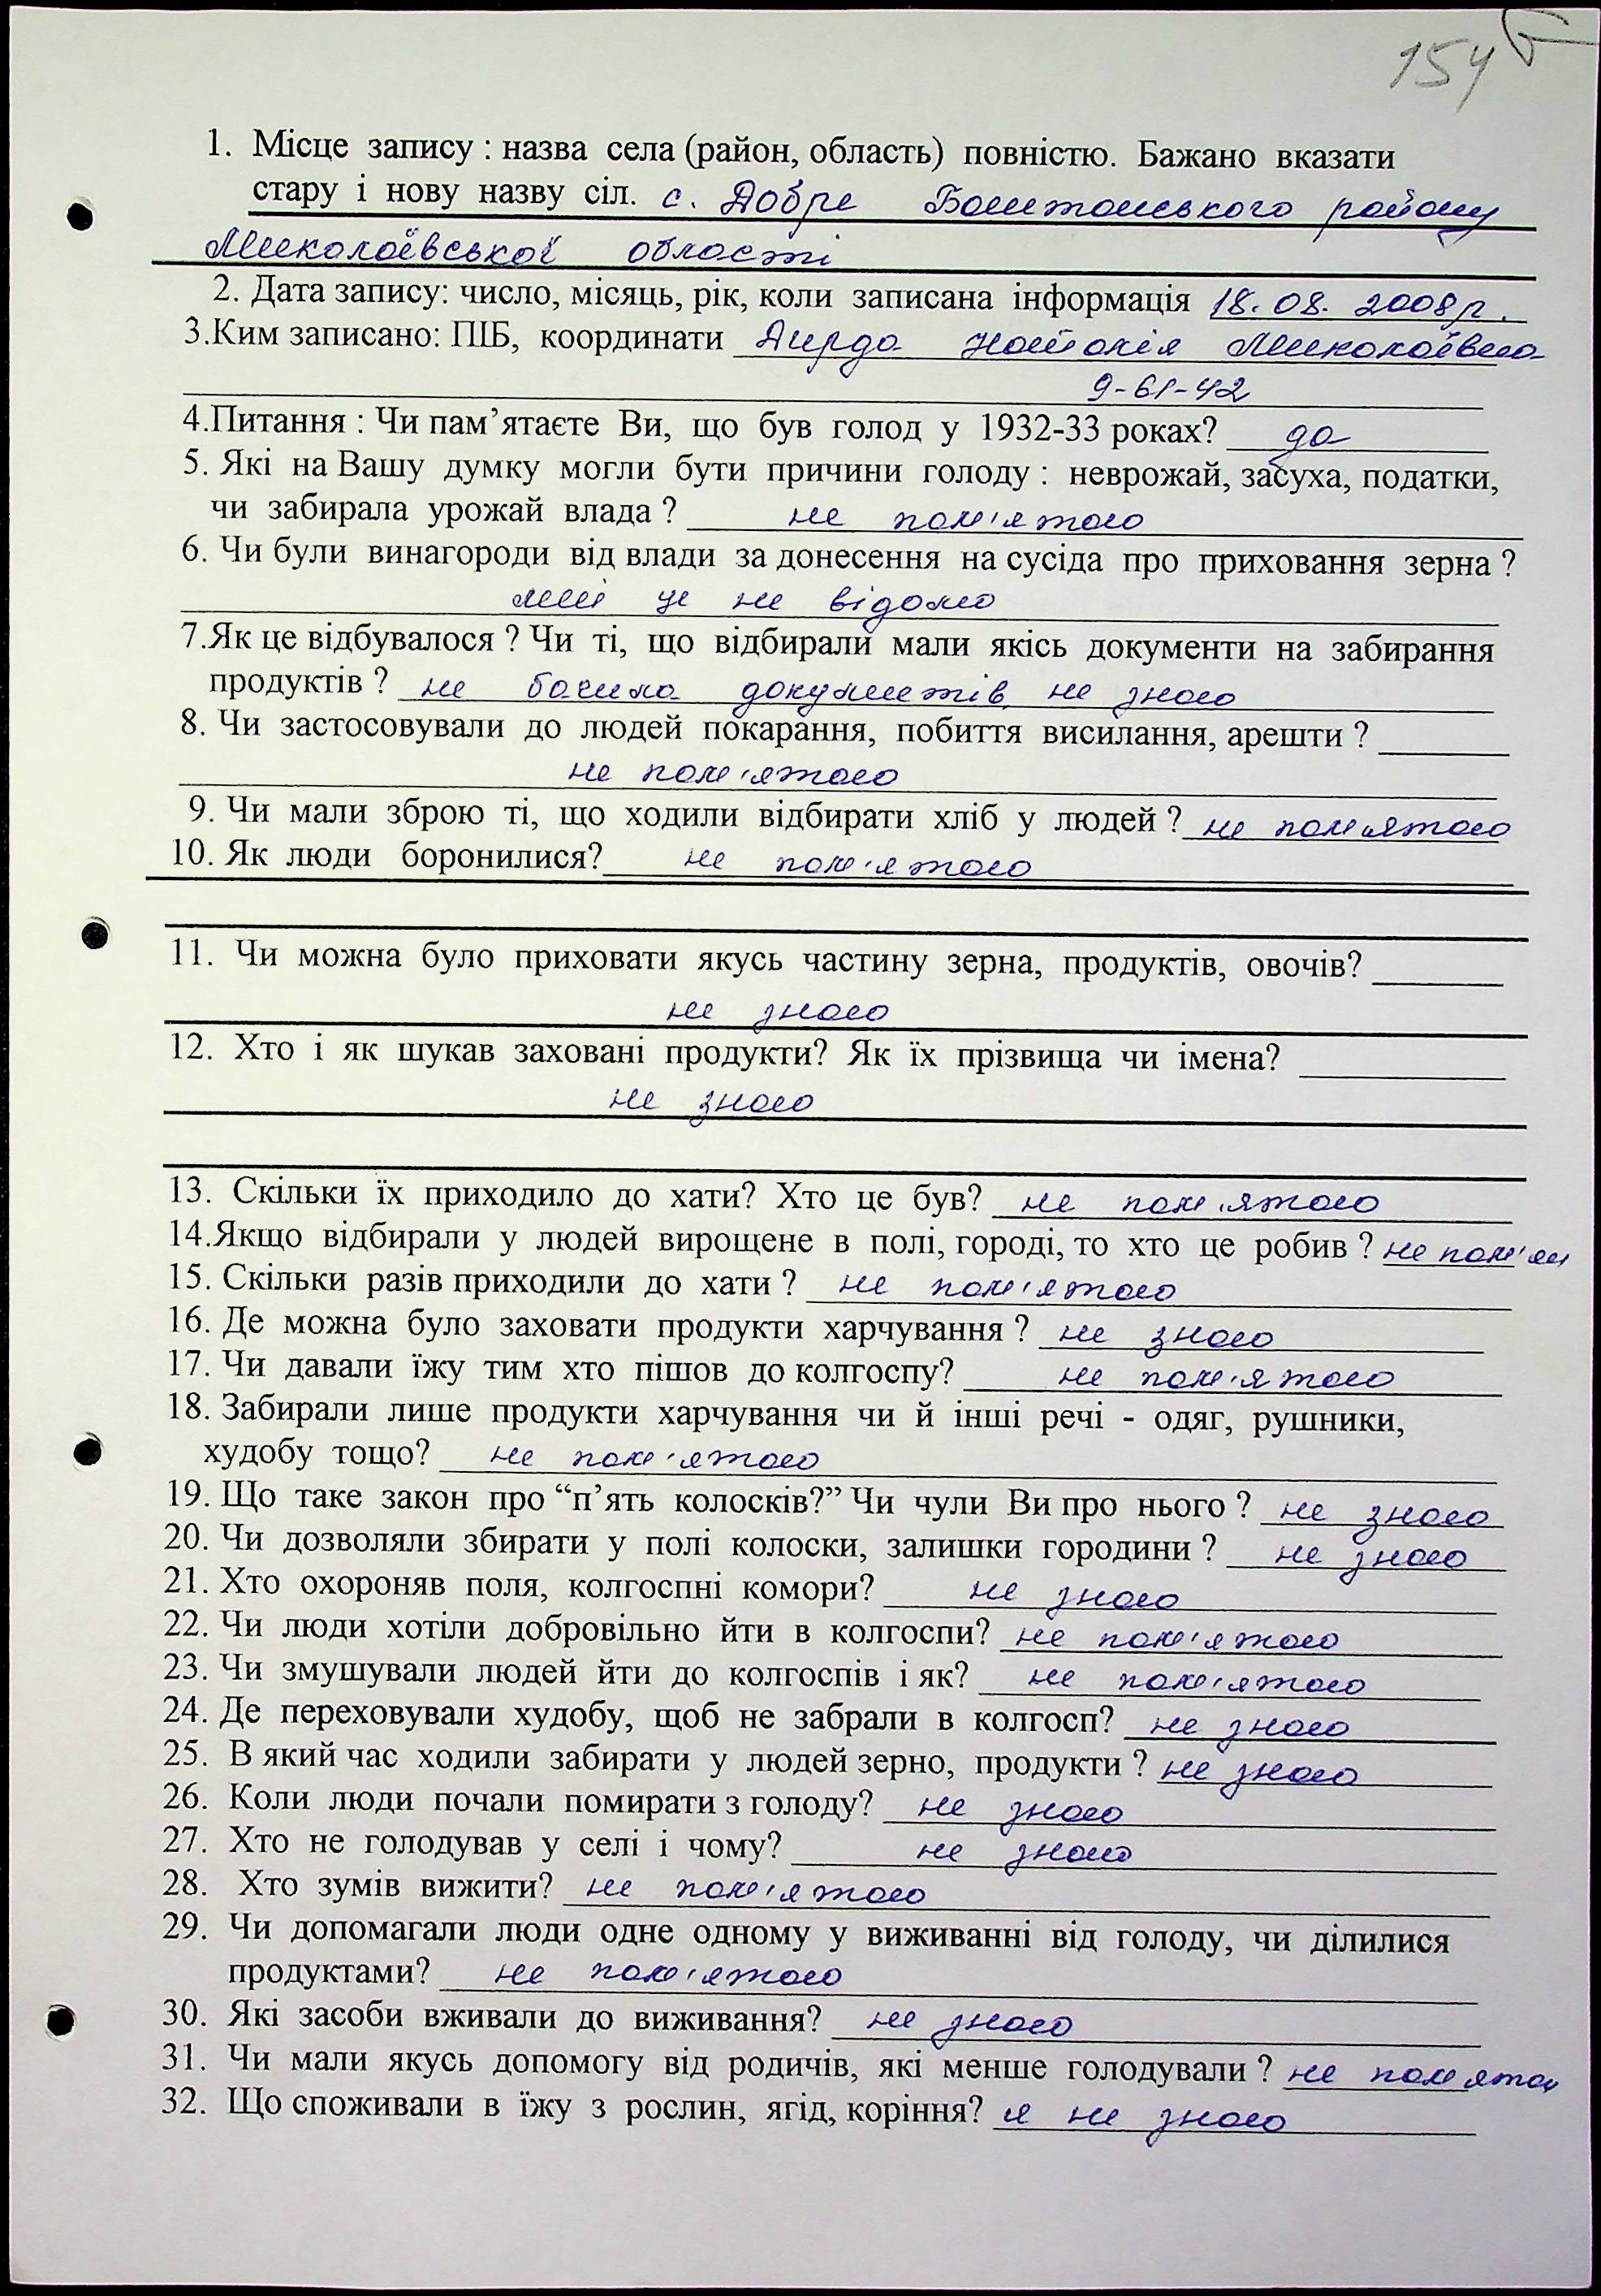 154
1. Місце запису : назва села (район, область) повністю. Бажано вказати
стару і нову назву сіл. с. Добре Баштанського району
Миколаївської області
2. Дата запису: число, місяць, рік, коли записана інформація 18.08.2008р.
3.Ким записано: ПІБ, координати Наталія Миколаївна
9-61-42
4.Питання : Чи пам’ятаєте Ви, що був голод у 1932-33 роках? да
5. Які на Вашу думку могли бути причини голоду : неврожай, засуха, податки,
чи забирала урожай влада ? не пам'ятаю
6. Чи були винагороди від влади за донесення на сусіда про приховання зерна ?
мені це не відомо
7.Як це відбувалося ? Чи ті, що відбирали мали якісь документи на забирання
продуктів ? не бачила документів, не знаю
8. Чи застосовували до людей покарання, побиття висилання, арешти ?
не пам'ятаю
9. Чи мали зброю ті, що ходили відбирати хліб у людей ? не пам'ятаю
10. Як люди боронилися? не пам'ятаю
11. Чи можна було приховати якусь частину зерна, продуктів, овочів?
не знаю
12. Хто і як шукав заховані продукти? Як їх прізвища чи імена?
не знаю
13. Скільки їх приходило до хати? Хто це був? не пам'ятаю
14.Якщо відбирали у людей вирощене в полі, городі, то хто це робив ? не
15. Скільки разів приходили до хати ? не пам'ятаю
16. Де можна було заховати продукти харчування ? не знаю
17. Чи давали їжу тим хто пішов до колгоспу? не пам'ятаю
18. Забирали лише продукти харчування чи й інші речі - одяг, рушники,
худобу тощо? не пам'ятаю
19. Що таке закон про “п’ять колосків?” Чи чули Ви про нього ? не знаю
20. Чи дозволяли збирати у полі колоски, залишки городини ? не знаю
21. Хто охороняв поля, колгоспні комори? не знаю
22. Чи люди хотіли добровільно йти в колгоспи? не пам'ятаю
23. Чи змушували людей йти до колгоспів і як? не пам'ятаю
24. Де переховували худобу, щоб не забрали в колгосп? не знаю
25. В який час ходили забирати у людей зерно, продукти ? не знаю
26. Коли люди почали помирати з голоду? не знаю
27. Хто не голодував у селі і чому? не знаю
28. Хто зумів вижити? не пам'ятаю
29. Чи допомагали люди одне одному у виживанні від голоду, чи ділилися
продуктами? не пам'ятаю
30. Які засоби вживали до виживання? не знаю
31. Чи мали якусь допомогу від родичів, які менше голодували ? не пам'ятаю
32. Що споживали в їжу з рослин, ягід, коріння? я не знаю